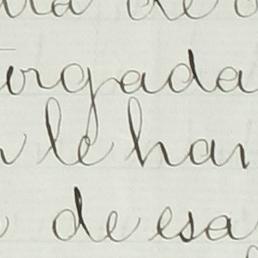 de
orgada
le han
de esa